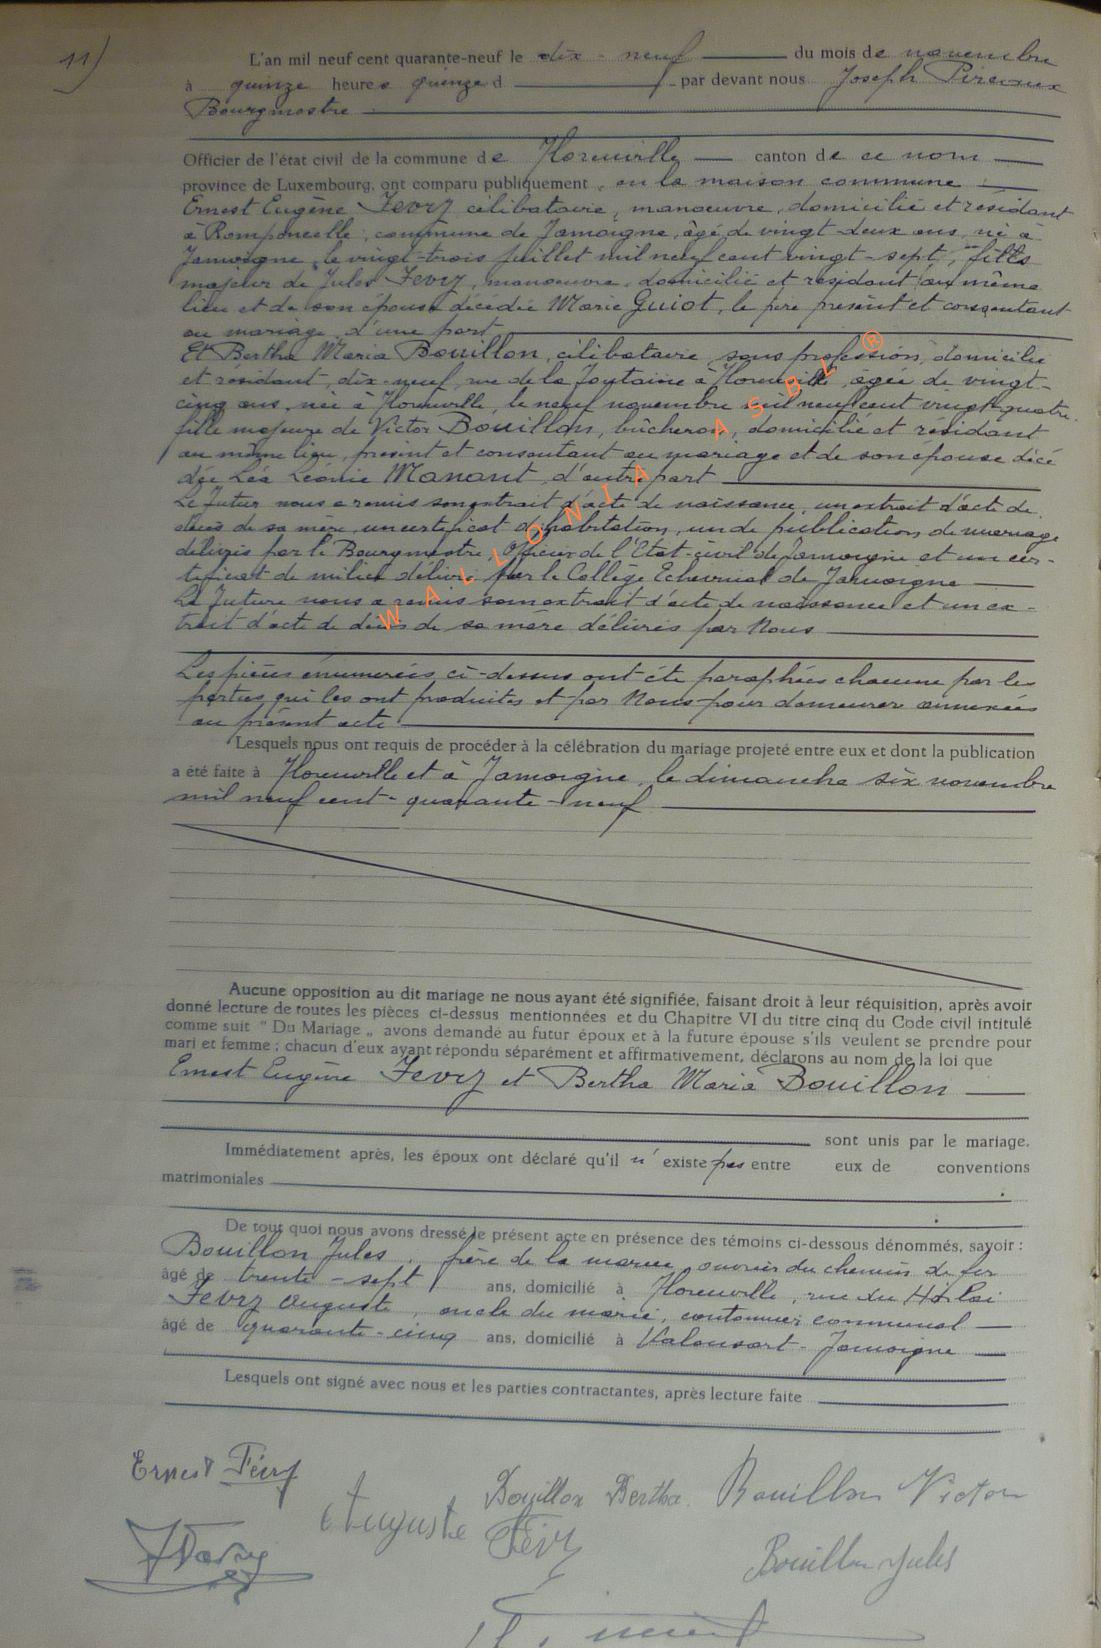 11)
L'an mil neuf cent quarante-neuf le dix-neuf du mois de novembre
à quinze heures quinze d par devant nous Joseph
Bourgmestre
Officier de l'état civil de la commune de Florenville canton de ce nom
province de Luxembourg, ont comparu publiquement en la maison commune
Ernest Eugène Fevry célibataire, manœuvre, domicilié et résidant
à Romponcelle, commune de Jamoigne, âgé de vingt-deux ans, né à
Jamoigne, le vingt-trois juillet mil neuf cent vingt-sept, fils
majeur de Jules Fevry, manœuvre, domicilié et résidant au même
lieu et de son épouse décédée Marie Guiot, le père présent et consentant
au mariage, d'une part
Et Bertha Maria Bouillon, célibataire, sans profession, domicilié
et résidant, dix-neuf, rue de la Fontaine à Florenville, âgée de vingt-
cinq ans, née à Florenville, le neuf novembre mil neuf cent vingt quatre
fille majeure de Victor Bouillon, bûcheron, domicilié et résidant
au même lieu, présent et consentant au mariage et de son épouse décé
dée Léa Léonie Manant, d'autre part
Le Futur nous a remis son extrait d'acte de naissance, un extrait d'acte de
décès de sa mère, un certificat d'habitation, un de publication de mariage
délivrés par le Bourgmestre, Officier de l'Etat-civil de Jamoigne et un cer-
tificat de milice délivré par le Collège Echevinal de Jamoigne
La Future nous a remis son extrait d'acte de naissance et un ex-
trait d'acte de décès de sa mère délivrés par Nous
Les pièces énumérées ci-dessus ont été paraphées chacune par les
parties qui les ont produites et par Nous pour demeurer annexées
au présent acte
Lesquels nous ont requis de procéder à la célébration du mariage projeté entre eux et dont la publication
a été faite à Florenville et à Jamoigne, le dimanche six novembre
mil neuf cent-quarante-neuf
Aucune opposition au dit mariage ne nous ayant été signifiée, faisant droit à leur réquisition, après avoir
donné lecture de toutes les pièces ci-dessus mentionnées et du Chapitre VI du titre cinq du Code civil intitulé
comme suit " Du Mariage „ avons demandé au futur époux et à la future épouse s'ils veulent se prendre pour
mari et femme : chacun d'eux ayant répondu séparément et affirmativement, déclarons au nom de la loi que
Ernest Eugène Fevry et Bertha Maria Bouillon
sont unis par le mariage.
Immédiatement après, les époux ont déclaré qu'il n' existe pas entre eux de conventions
matrimoniales
De tout quoi nous avons dressé le présent acte en présence des témoins ci-dessous dénommés, savoir :
Bouillon Jules, frère de la mariée, ouvrier du chemin de fer
âgé de trente-sept ans, domicilié à Florenville, rue du
Fevry Auguste, oncle du marié, cantonnier communal
âgé de quarante-cinq ans, domicilié à Valansart-Jamoigne
Lesquels ont signé avec nous et les parties contractantes, après lecture faite
Ernest Févry
Bouillon Bertha Bouillon Victor
Auguste Févry
Bouillon Jules
WALLONIA ASBL ®